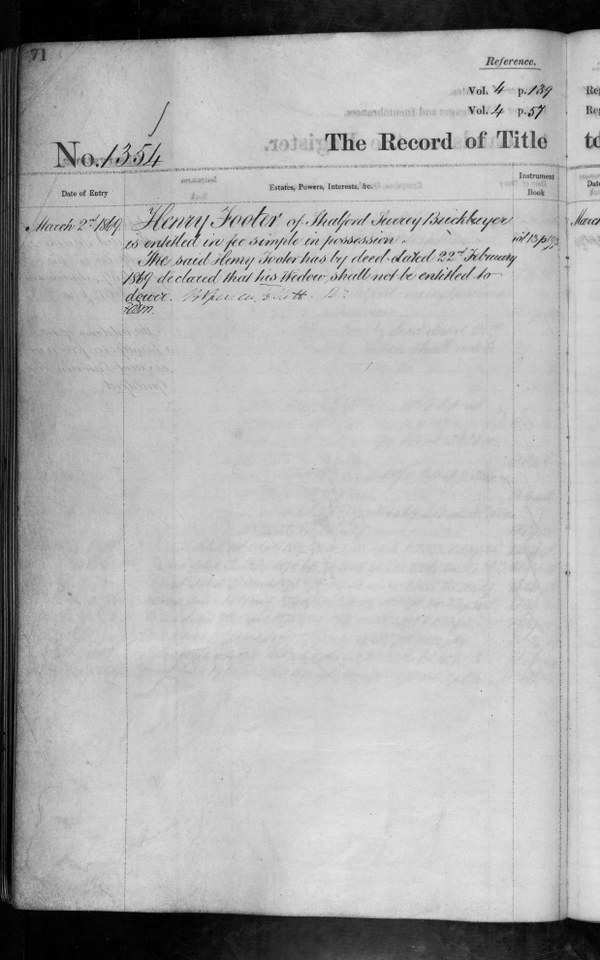 71
Reference.
Vol. 4 p. 139
Vol. 4 p. 57
No. 1354
The Record of Title
Date of Entry
Estates, Powers, Interests, &c.
Instrument
Book
March 2nd 1869
Henry Footer of Shalford Surrey
is entitled in fee simple in possession.
The said Henry Footer has by deed dated 22nd February
1869 declared that his Widow shall not be entitled to
dower.
to
March